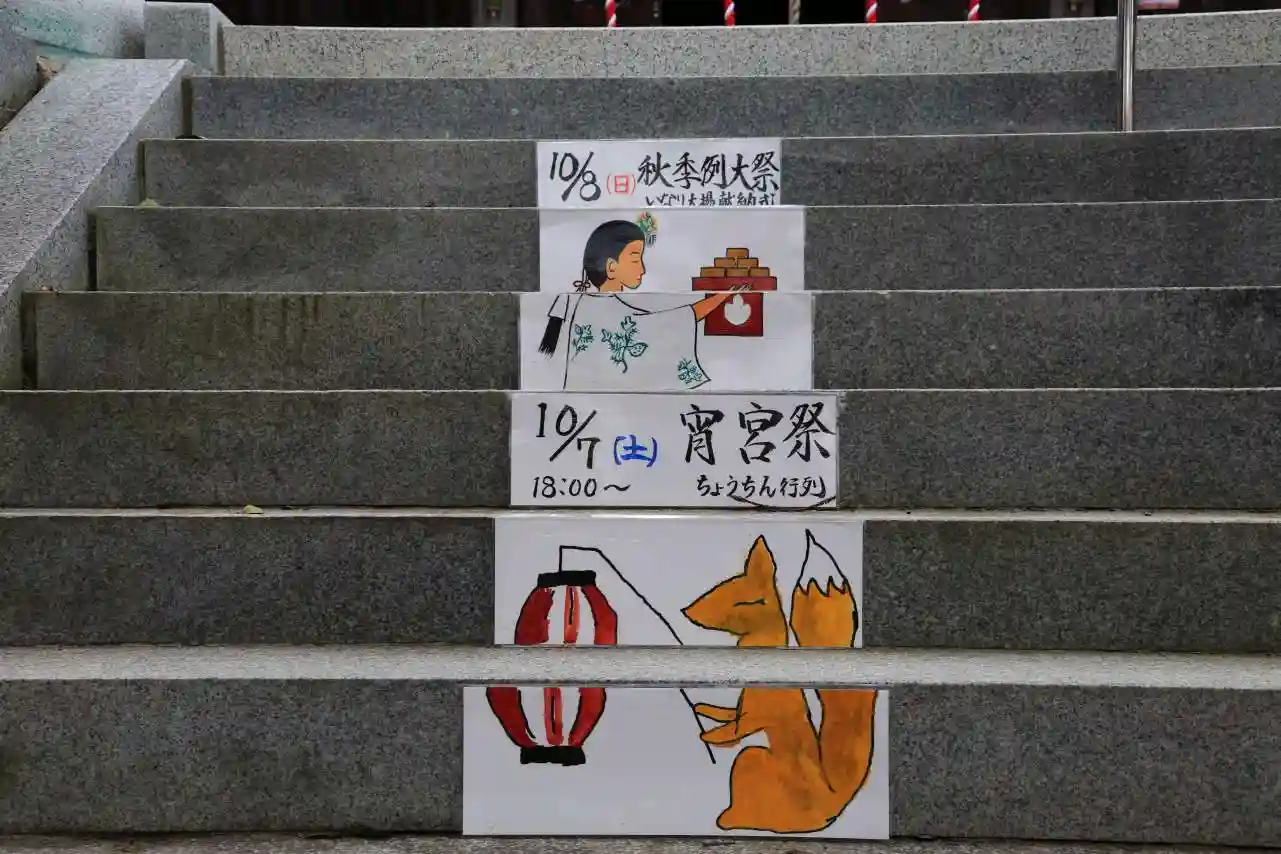 10/8(日) 秋季例大祭
いなり大揚献納式
10/7(土) 宵宮祭
18:00〜 ちょうちん行列